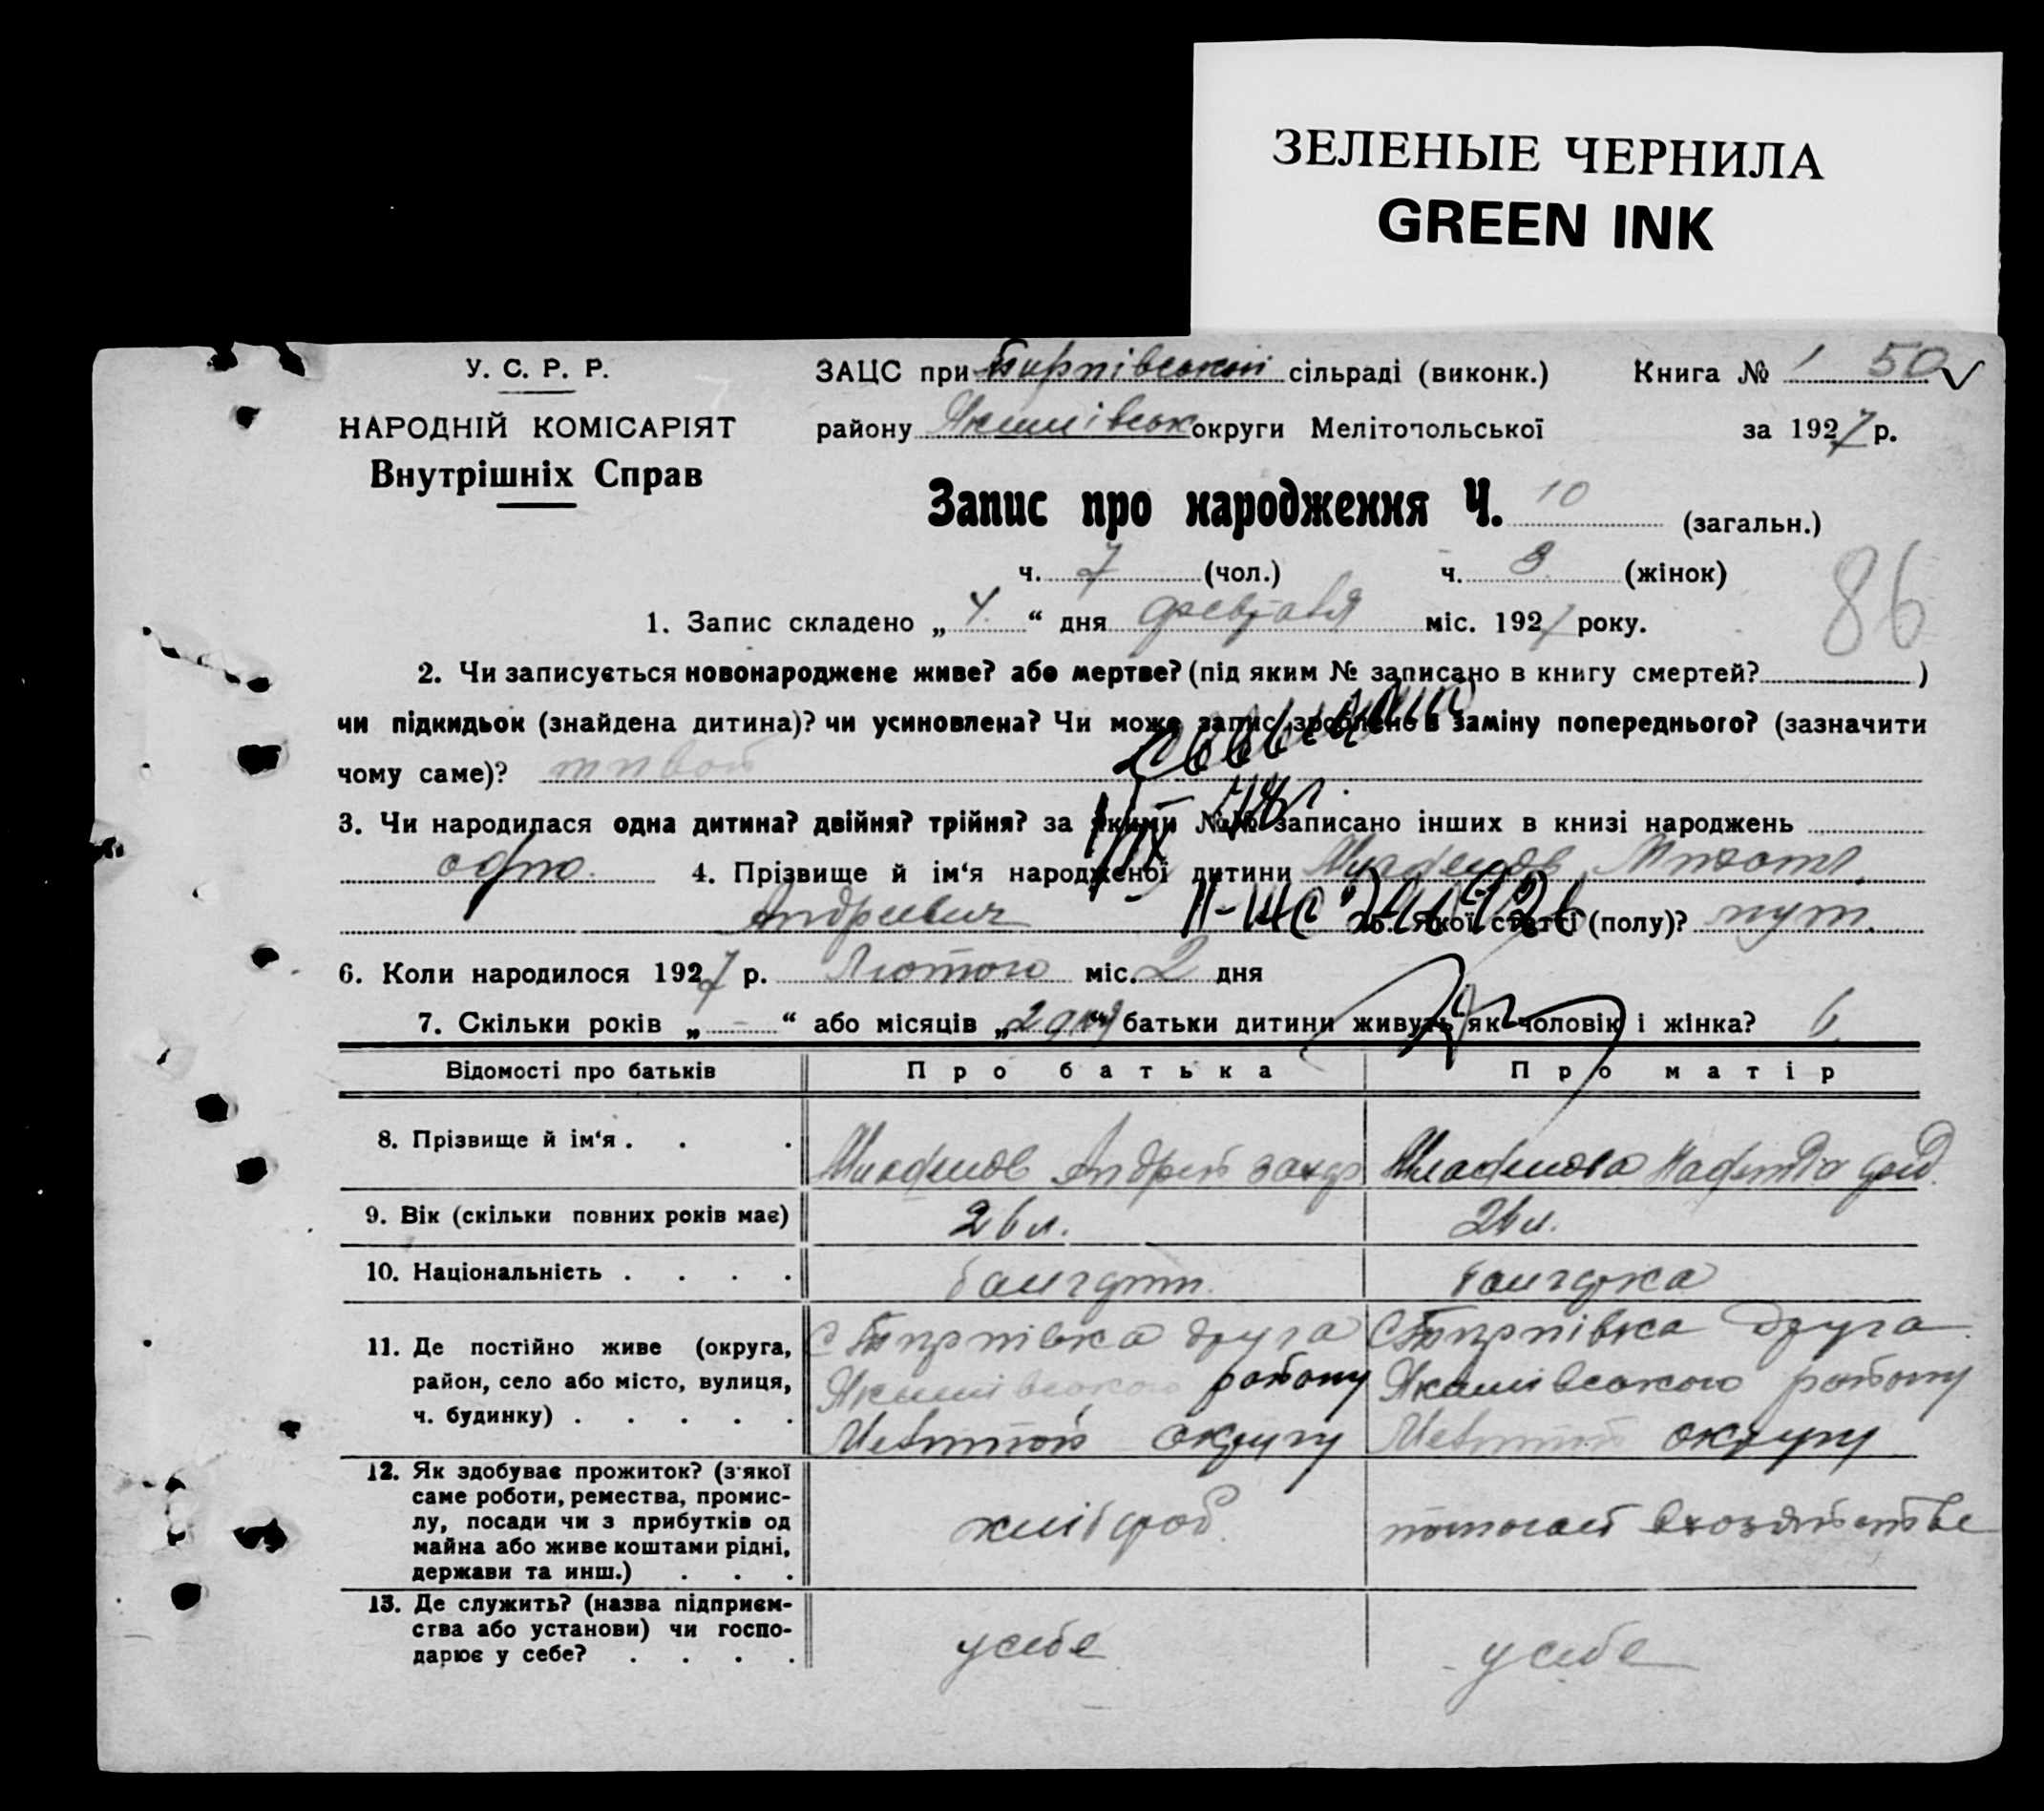 ЗЕЛЕНЫЕ ЧЕРНИЛА
GREEN INK
У. С. Р. Р.
НАРОДНІЙ КОМІСАРІЯТ
Внутрішніх Справ
ЗАЦС при сільраді (виконк.) Книга № 1 50
району Якимівськ округи Мелітопольської за 1927 р.
Запис про народження Ч. 10 (загальн.)
ч. 7 (чол.) ч. 3 (жінок)
86
1. Запис складено „ 4 “ дня февраля міс. 1927 року.
2. Чи записується новонароджене живе? або мертве? (під яким № записано в книгу смертей? )
чи підкидьок (знайдена дитина)? чи усиновлена? Чи може запис зроблено в заміну попереднього? (зазначити
чому саме)? живой
3. Чи народилася одна дитина? двійня? трійня? за якими №№ записано інших в книзі народжень
одна. 4. Прізвище й ім‘я народженої дитини
Андреевич 5. Якої статті (полу)? муж.
6. Коли народилося 1927 р. Лютого міс. 2 дня
7. Скільки років „ - “ або місяців „ 2 дня “ батьки дитини живуть як чоловік і жінка? 6
Відомості про батьків Про батька Про матір
8. Прізвище й ім‘я . . . Андрей
9. Вік (скільки повних років має) 26 л. 26 л.
10. Національність . . . . болгарин. болгарка
11. Де постійно живе (округа, район, село або місто, вулиця, ч. будинку) . . . . . друга Якимівського району округу друга Якимівського району округу
12. Як здобуває прожиток? (з якої саме роботи, ремества, промислу, посади чи з прибутків од майна або живе коштами рідні, держави та инш.) . . . хлібороб. помогает в хозяйстве
13. Де служить? (назва підприємства або установи) чи господарює у себе? . . . . у себе у себе